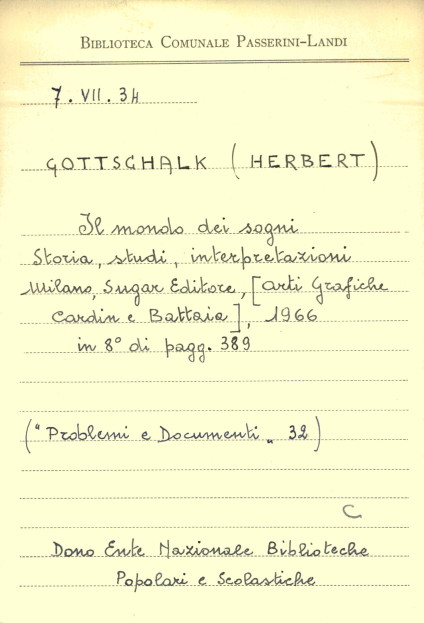 BIBLIOTECA COMUNALE PASSERINI-LANDI
7. VII. 34
GOTTSCHALK (HERBERT)
Il mondo dei sogni
Storia, studi, interpretazioni
Milano, Sugar Editore, [Arti Grafiche
Cardin e Battaia], 1966
in 8° di pagg. 389
("Problemi e Documenti„ 32)
C
Dono Ente Nazionale Biblioteche
Popolari e Scolastiche